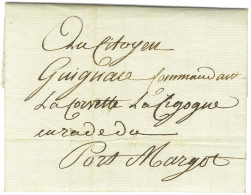 Au Citoyen
Guignace Commandant
La Corvette La Cigogne
en rade du
Port Margot